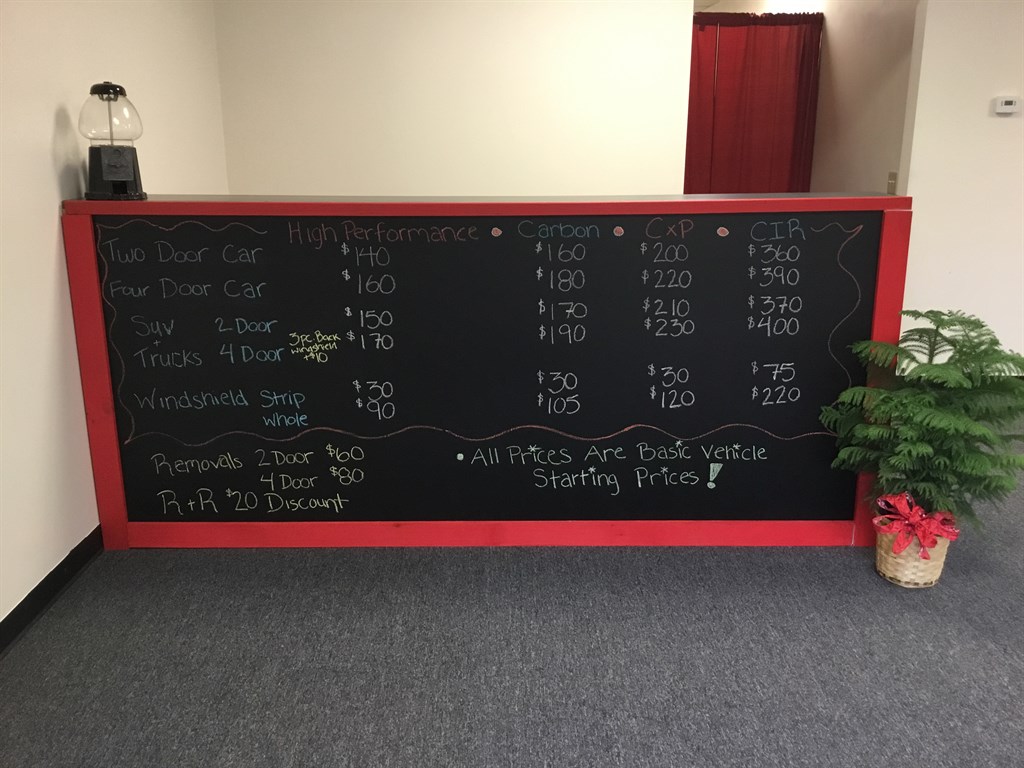 High Performance • Carbon • CxP • CIR
Two Door Car $140 $160 $200 $360
Four Door Car $160 $180 $220 $390
Suv 2 Door $150 $170 $210 $370
+
Trucks 4 Door 3pc. Back windshield +$10 $170 $190 $230 $400
Windshield Strip $30 $30 $30 $75
whole $90 $105 $120 $220
Removals 2 Door $60
4 Door $80
R+R $20 Discount
• All Prices Are Basic Vehicle
Starting Prices!